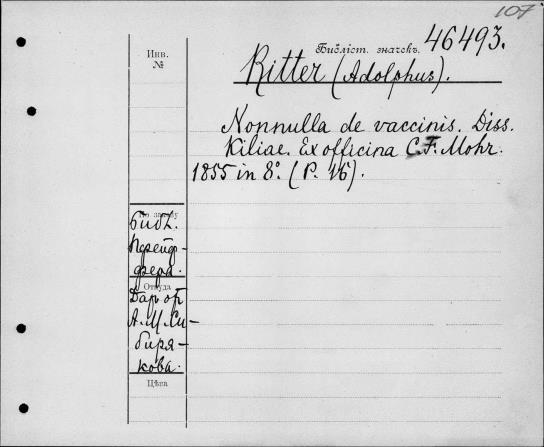 107
Инв.
№
Библіот. значекъ. 46493.
Ritter (Adolphus).
Nonnulla de vaccinis. Diss.
Kiliae. Ex officina C. F. Mohr.
1855 in 8°. (P. 16).
По заказу
Библ.
Пфейф-
фера.
Откуда
Даръ от
А. М. Си-
биря-
кова.
Цѣна